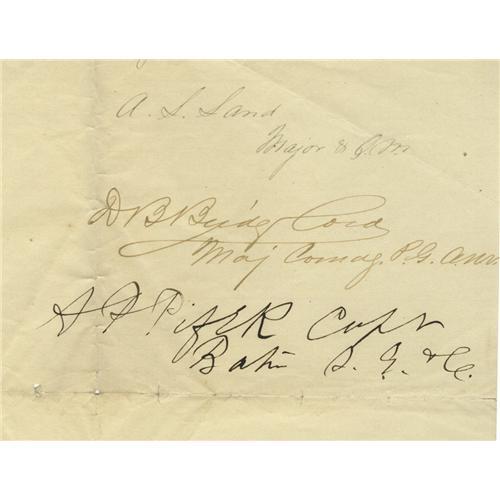 A. S. Land
Major & Q.M
D B Bridgford
Maj Comdg. P.G. A.N.V.
A F Pifer Capt
Batn